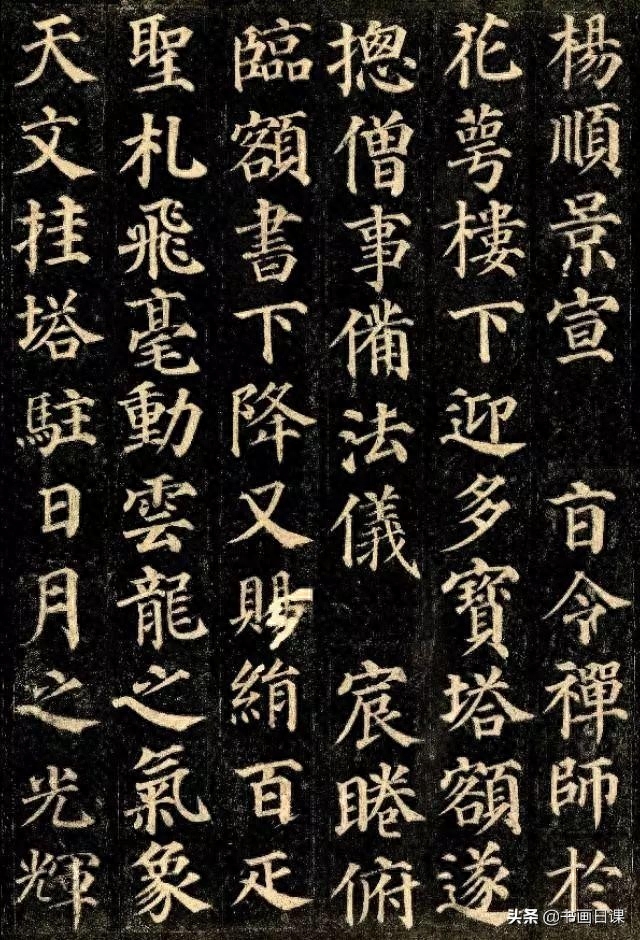 楊順景宣 㫖令禪師於
花萼樓下迎多寶塔額遂
揔僧事備法儀 宸睠俯
臨額書下降又賜絹百疋
聖札飛毫動雲龍之氣象
天文挂塔駐日月之光輝
头条 @书画日课